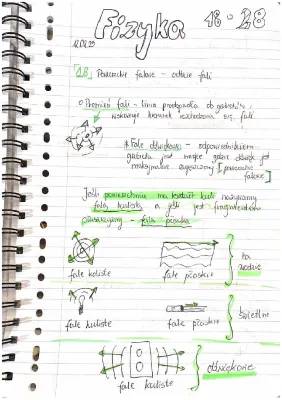 Fizyka 18 · 28
"18" falowe - odbicie fali
Promień fali - linia prostopadła do grzbietów i
wskazuje kierunek rozchodzenia się fali
Fale dźwiękowe - odpowiednikiem
grzbietu jest miejsce gdzie dźwięk jest
maksymalnie zagęszczony
Jeśli powierzchnia ma kształt kuli nazywamy
falą kulistą a jeśli jest fragmentem
- falą płaską
fale koliste
fale płaskie
na
wodzie
fale kuliste
fale płaskie
świetlne
fale kuliste
dźwiękowe